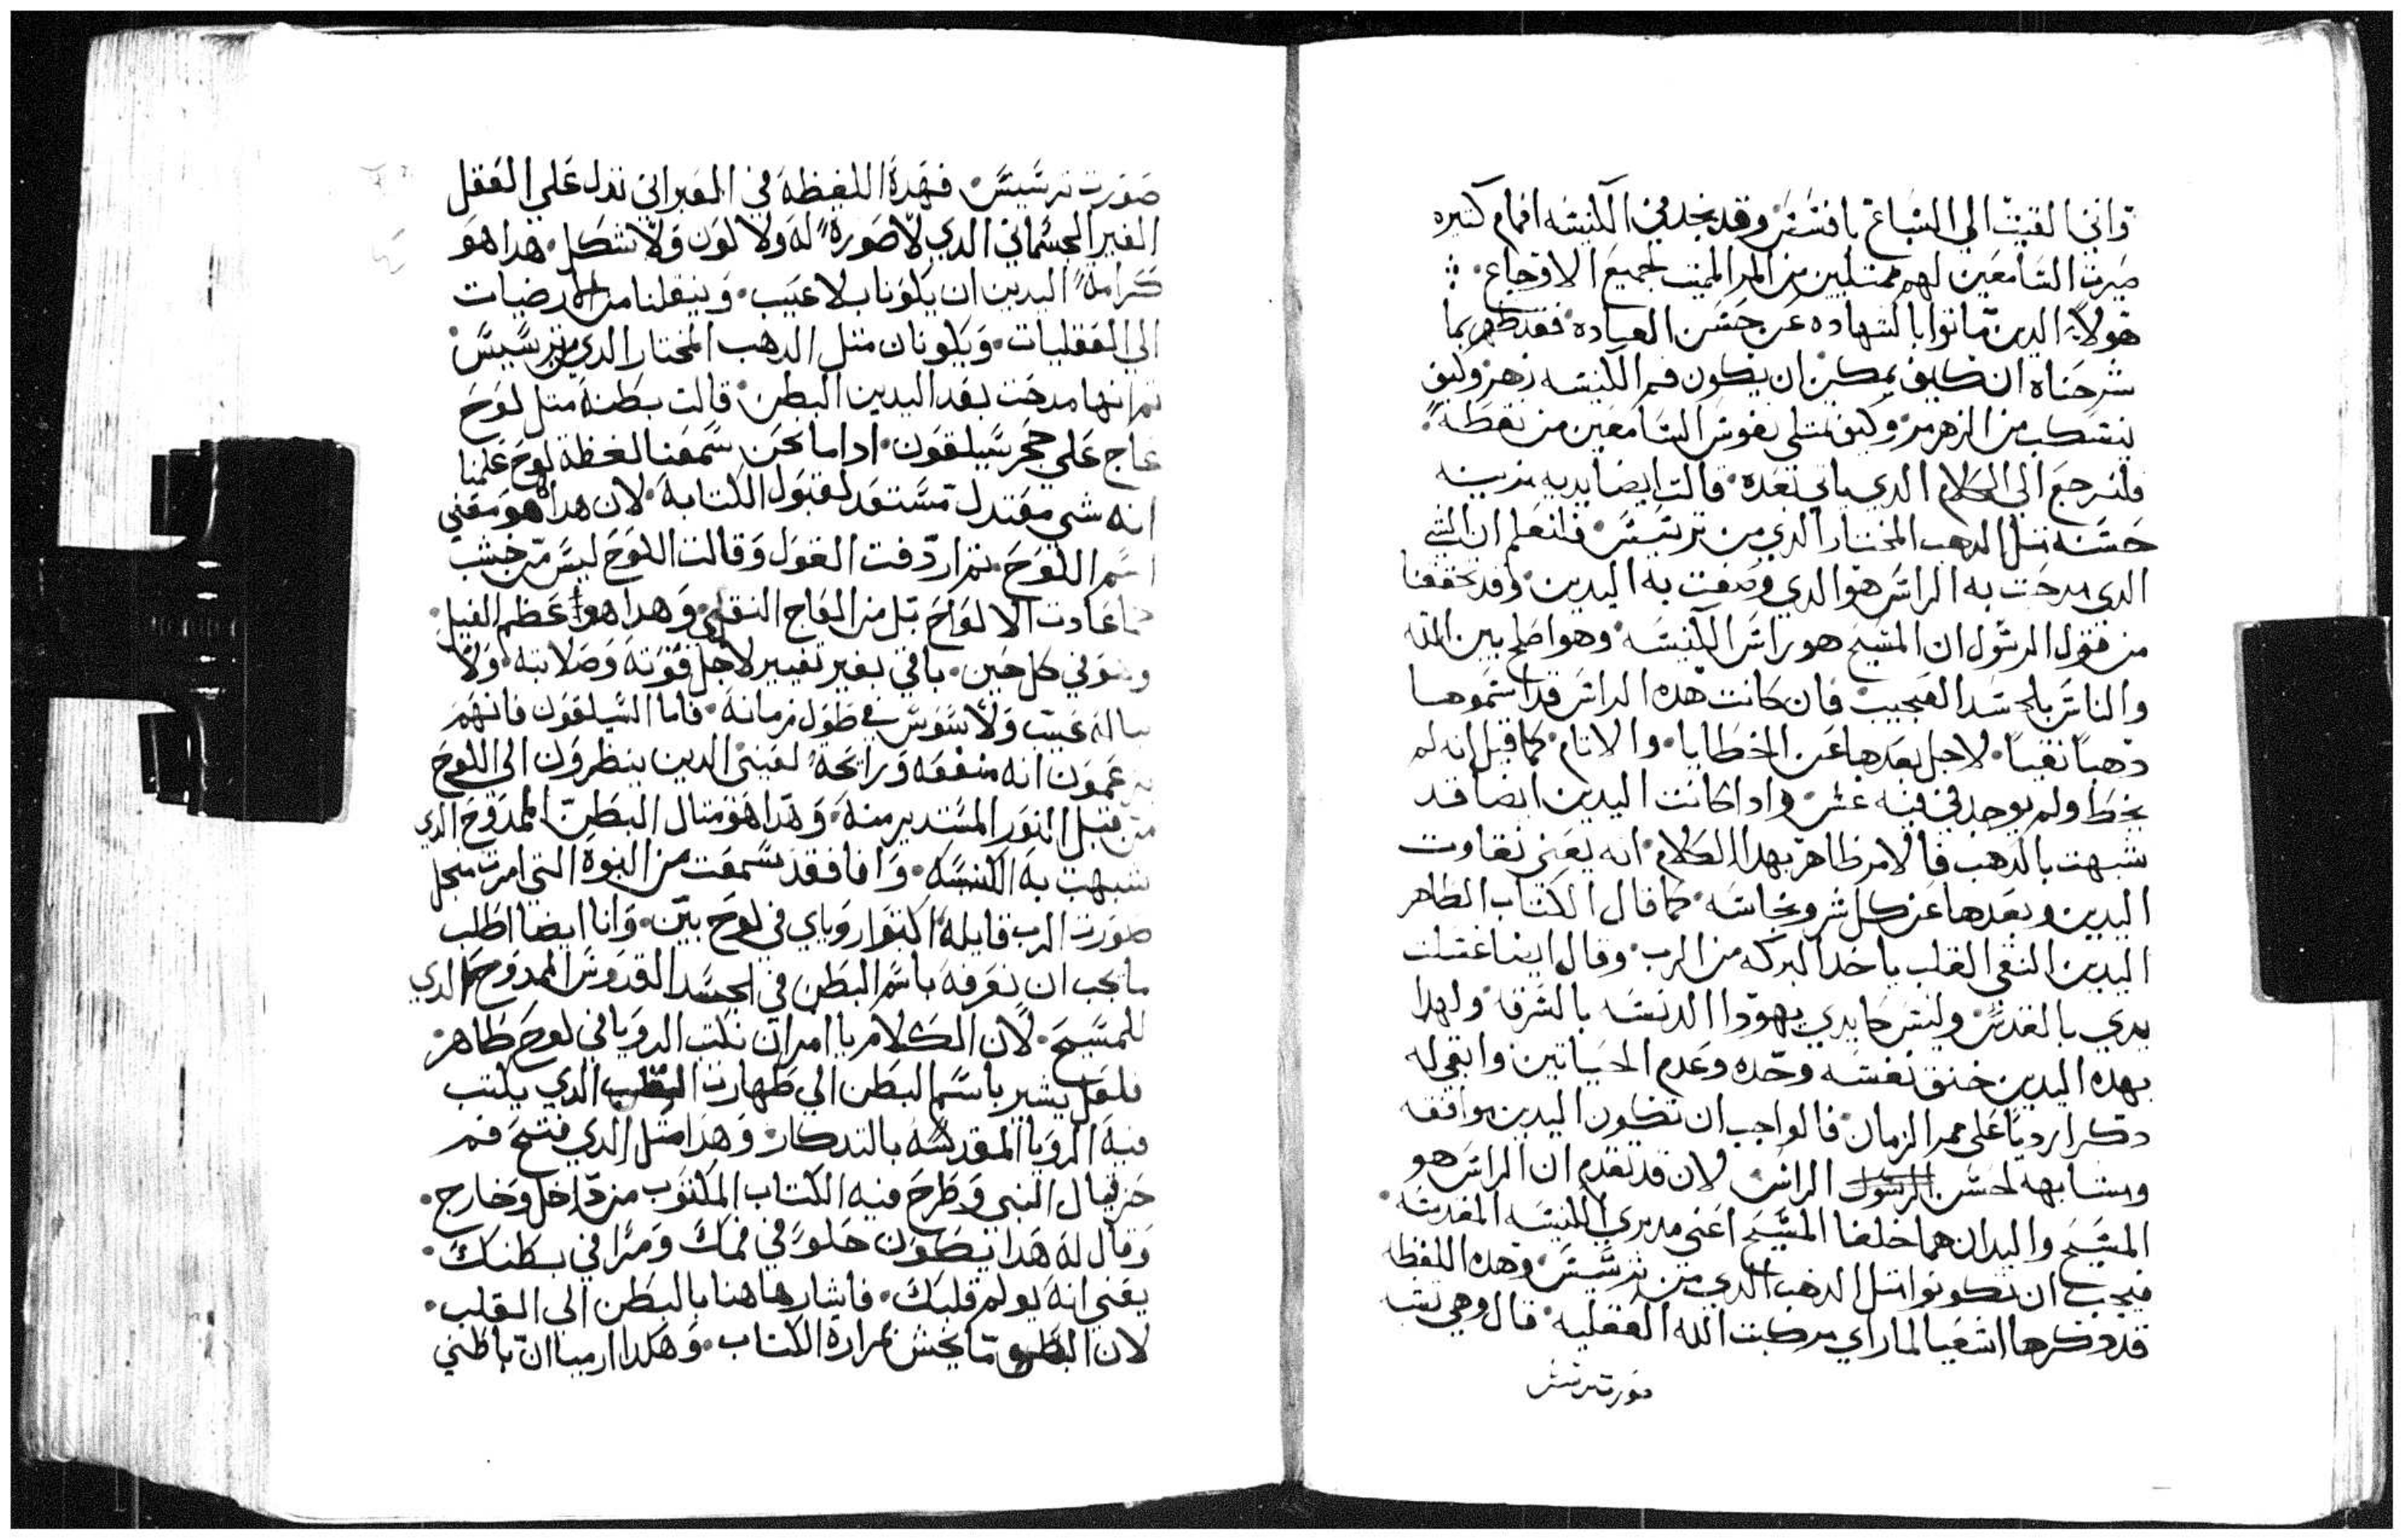 واني القيت الي السباع بافسس وقد نجد في الكنيسه افمام كثيره
صيرت السامعين لهم ممتليين من المر المميت لجميع الاوجاع
هولاء الدين ماتوا بالشهاده عن حسن العباده فقد ظهر بما
شرحناه ان كيف يمكن ان يكون فم الكنيسه زهر وكيف
ينسكب من الزهر مر وكيف تمتلي نفوس السامعين من نقطه
فلنرجع الي الكلام الدي ياتي بعده قالت ايضا يديه مزينه
حسنه متل الدهب المختار الدي من ترسيس فلنعلم ان الشي
الدي مدحت به الراس هو الدي وصفت به اليدين وقد تحققنا
من قول الرسول ان المسيح هو راس الكنيسه وهو اصلح بين الله
والناس بالجسد العجيب فان كانت هده الراس قد استموها
دهبا نقيا لاجل بعدها عن الخطايا والاتام كما قيل انه لم
يخط ولم يوجد في فيه غش وادا كانت اليدين ايضا قد
شبهت بالدهب فالامر ظاهر بهدا الكلام انه يعني نقاوت
اليدين وبعدها عن كل شر ونجاسه كما قال الكتاب الطاهر
اليدين النقي القلب ياخد البركه من الرب وقال ايضا غسلت
يدي بالقدس وليس كايدي يهودا الدنسه بالسرقه ولهدا
بهده اليدين خنق نفسه وحده وعدم الحياتين وابقي له
دكرا رديا علي ممر الزمان فالواجب ان تكون اليدين موافقه
ومشابهه لحسن الراس لان قد تقدم ان الراس هو
المسيح واليدان هما خلفا المسيح اعني مدبري الكنيسه المقدسه
فيجب ان تكونوا متل الدهب الدي من ترسيس وهده اللفظه
قد دكرها اشعيا لما راي مركبت الله العقليه قال وهي تشبه
صورت ترسيس
صورت ترسيس فهده اللفظه في العبراني تدل علي العقل
الغير الجسماني الدي لا صوره له ولا لون ولا شكل هدا هو
كرامة اليدين ان يكونا بلا عيب وينقلنا من الارضيات
الي العقليات ويكونان متل الدهب المختار الدي من ترسيس
تم انها مدحت بعد اليدين البطن قالت بطنه متل لوح
عاج علي حجر سيلقون ادا ما نحن سمعنا لفظه لوح علمنا
انه شي معتدل مستعد لقبول الكتابه لان هدا هو معني
اسم اللوح تم اردفت القول وقالت اللوح ليس من خشب
كما عادت الالواح بل من العاج النقي وهدا هو عظم الفيل
وهو في كل حين باقي بغير تغيير لاجل قوته وصلابته ولا
يناله عيب ولا سوس في طول زمانه فاما السيلقون فانهم
يزعمون انه منفعه وراحة لعيني الدين ينظرون الي اللوح
من قبل النور المستدير منه وهدا هو متال البطن الممدوح الدي
شبهت به الكنيسه وانا فقد سمعت من النبوه التي امرت
صورت الرب قايلة اكتبوا روياي في لوح بين وانا ايضا اطلب
ما يجب ان نعرفه باسم البطن في الجسد القدوس الممدوح الدي
للمسيح لان الكلام يامر ان نكتب الرويا في لوح ظاهر
فلعل يشير باسم البطن الي طهارت القلب الدي يكتب
فيه الرويا المقدسه بالتدكار وهدا متل الدي فتح فم
حزقيال النبي وطرح فيه الكتاب المكتوب من داخل وخارج
وقال له هدا يكون حلو في فمك ومرا في بطنك
يعني انه يولم قلبك فاشار هاهنا بالبطن الي القلب
لان البطن ما يحس بمرارة الكتاب وهكدا ارميا ان باطني